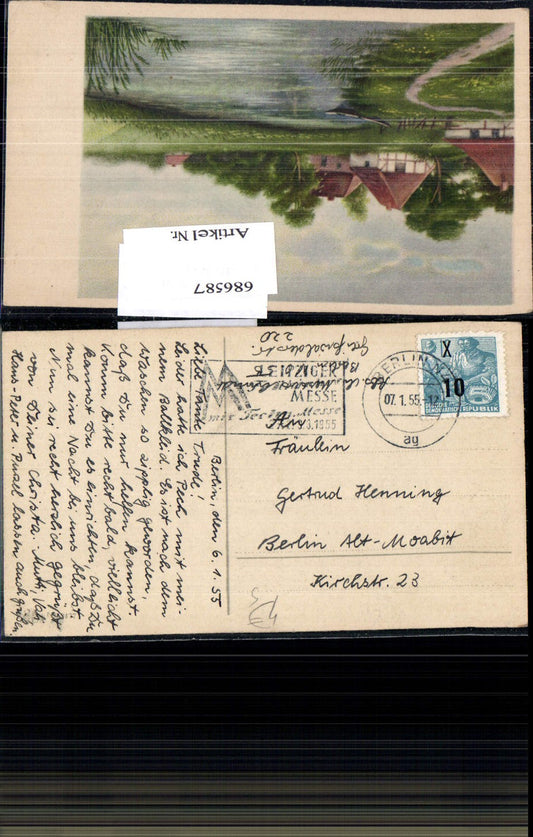 Artikel Nr.
686587
Berlin, den 6.1.55
Liebe Tante Trude!
Leider hatte ich Pech mit mei-
nem Ballkleid. Es ist nach dem
Waschen so zipplig geworden,
daß du mir helfen kannst.
Komm bitte recht bald, vielleicht
kannst Du es einrichten, daß Du
mal eine Nacht bei uns bleibst.
Nun sei recht herzlich gegrüßt
von Deiner Christa. Mutti, Vati,
Hans-Peter u. lassen auch grüßen
LEIPZIGER
MESSE
mit Techn. Messe
1955
BERLIN N
07.1.55.-12
ag
X
10
DEUTSCHE
DEMOKRATISCHE REPUBLIK
220
An
Fräulein
Gertrud Henning
Berlin Alt-Moabit
Kirchstr. 23